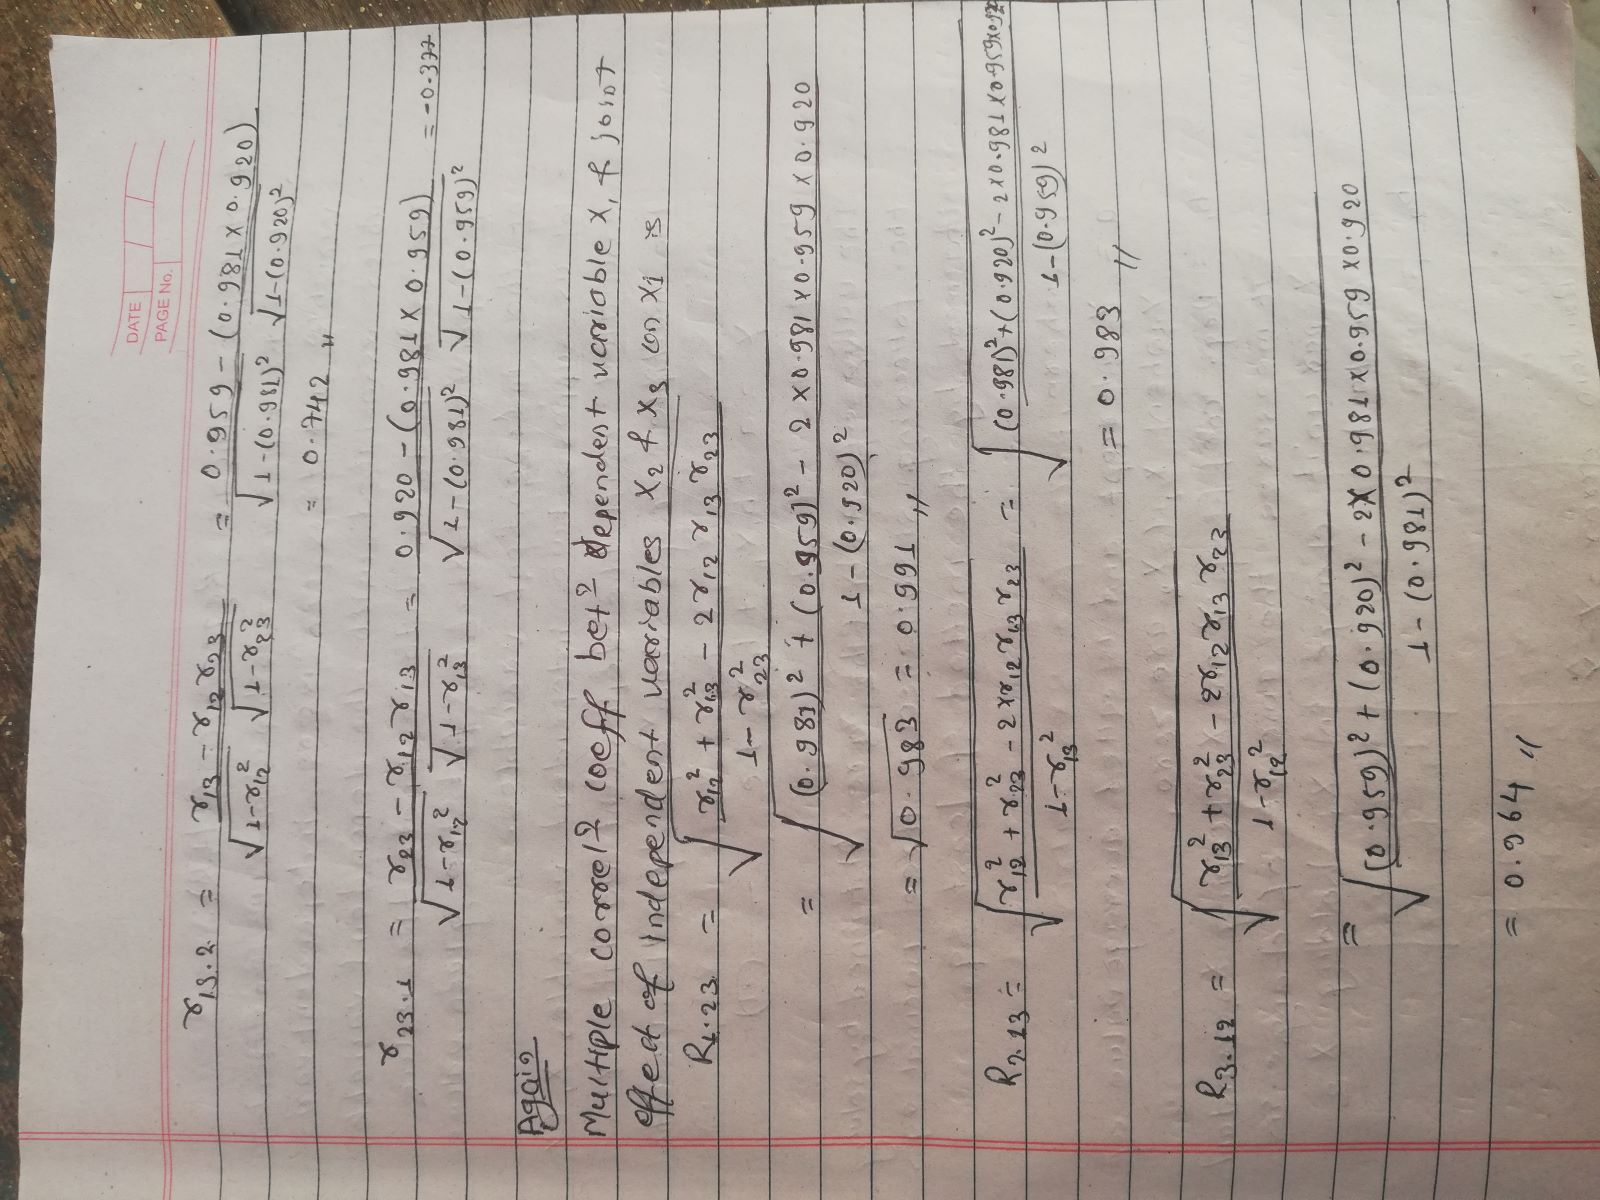 DATE
PAGE No.
r13.2 = (r13 - r12 r23) / (√(1-r12²) √(1-r23²)) = (0.959 - (0.981 × 0.920)) / (√(1-(0.981)²) √(1-(0.920)²))
= 0.742 〃
r23.1 = (r23 - r12 r13) / (√(1-r12²) √(1-r13²)) = (0.920 - (0.981 × 0.959)) / (√(1-(0.981)²) √(1-(0.959)²)) = -0.377
Again
Multiple correlⁿ coeff betⁿ dependent variable X1 & joint
effect of independent variables X2 & X3 on X1 is
R1.23 = √((r12² + r13² - 2 r12 r13 r23) / (1 - r23²))
= √(((0.981)² + (0.959)² - 2 × 0.981 × 0.959 × 0.920) / (1 - (0.920)²))
= √0.983 = 0.991 〃
R2.13 = √((r12² + r23² - 2×r12 r13 r23) / (1-r13²)) = √(((0.981)² + (0.920)² - 2×0.981×0.959×0.920) / (1-(0.959)²))
= 0.983 〃
R3.12 = √((r13² + r23² - 2r12 r13 r23) / (1-r12²))
= √(((0.959)² + (0.920)² - 2×0.981×0.959×0.920) / (1-(0.981)²))
= 0.964 〃